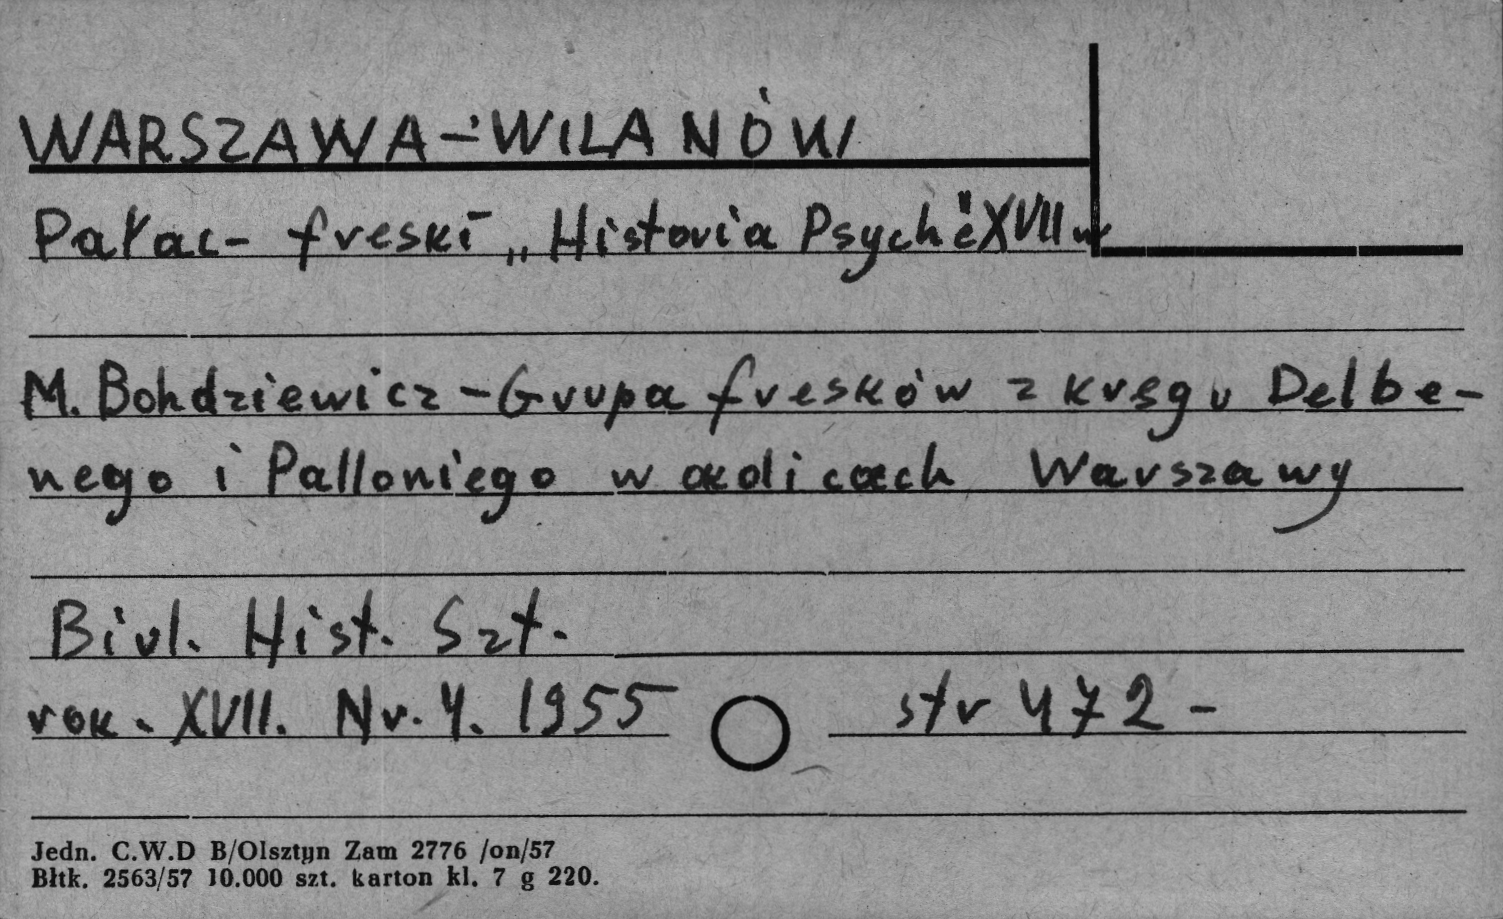 WARSZAWA-WILANÓW
Pałac- freski „Historia Psychē" XVII w
M. Bohdziewicz - Grupa fresków z kręgu Delbe-
nego i Palloniego w okolicach Warszawy
Biul. Hist. Szt.
rok. XVII. Nr. 4. 1955 str 472 -
Jedn. C.W.D B/Olsztyn Zam 2776 /on/57
Błtk. 2563/57 10.000 szt. karton kl. 7 g 220.